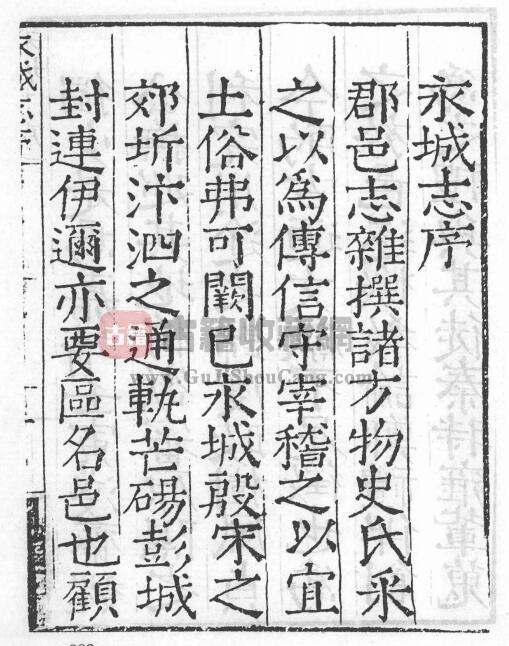 永城志序
郡邑志雜撰諸方物史氏采
之以爲傳信守宰稽之以宜
土俗弗可闕已永城殷宋之
郊圻汴泗之通軌芒碭彭城
封連伊邇亦要區名邑也顧
永城志序
古籍
古籍收藏網
www.GuJiShouCang.com